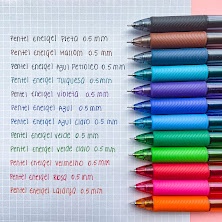 Pentel Energel Preta 0.5 mm
Pentel Energel Marrom 0.5 mm
Pentel Energel Azul Petróleo 0.5 mm
Pentel Energel Turquesa 0.5 mm
Pentel Energel Violeta 0.5 mm
Pentel Energel Azul 0.5 mm
Pentel Energel Azul Claro 0.5 mm
Pentel Energel Verde 0.5 mm
Pentel Energel Verde Claro 0.5 mm
Pentel Energel Vermelho 0.5 mm
Pentel Energel Rosa 0.5 mm
Pentel Energel Laranja 0.5 mm